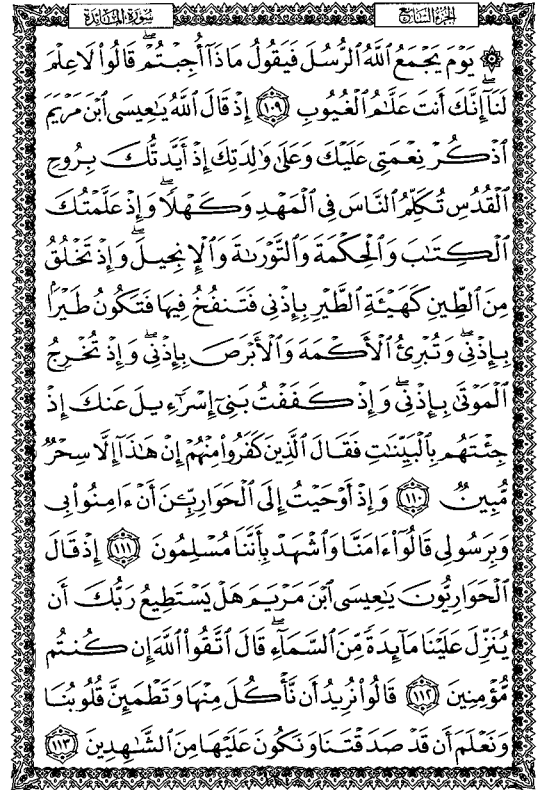 الجزء السابع
سورة المائدة
۞ يَوْمَ يَجْمَعُ ٱللَّهُ ٱلرُّسُلَ فَيَقُولُ مَاذَآ أُجِبْتُمْ ۖ قَالُوا۟ لَا عِلْمَ
لَنَآ ۖ إِنَّكَ أَنتَ عَلَّـٰمُ ٱلْغُيُوبِ ١٠٩ إِذْ قَالَ ٱللَّهُ يَـٰعِيسَى ٱبْنَ مَرْيَمَ
ٱذْكُرْ نِعْمَتِى عَلَيْكَ وَعَلَىٰ وَٰلِدَتِكَ إِذْ أَيَّدتُّكَ بِرُوحِ
ٱلْقُدُسِ تُكَلِّمُ ٱلنَّاسَ فِى ٱلْمَهْدِ وَكَهْلًا ۖ وَإِذْ عَلَّمْتُكَ
ٱلْكِتَـٰبَ وَٱلْحِكْمَةَ وَٱلتَّوْرَىٰةَ وَٱلْإِنجِيلَ ۖ وَإِذْ تَخْلُقُ
مِنَ ٱلطِّينِ كَهَيْـَٔةِ ٱلطَّيْرِ بِإِذْنِى فَتَنفُخُ فِيهَا فَتَكُونُ طَيْرًۢا
بِإِذْنِى ۖ وَتُبْرِئُ ٱلْأَكْمَهَ وَٱلْأَبْرَصَ بِإِذْنِى ۖ وَإِذْ تُخْرِجُ
ٱلْمَوْتَىٰ بِإِذْنِى ۖ وَإِذْ كَفَفْتُ بَنِىٓ إِسْرَٰٓءِيلَ عَنكَ إِذْ
جِئْتَهُم بِٱلْبَيِّنَـٰتِ فَقَالَ ٱلَّذِينَ كَفَرُوا۟ مِنْهُمْ إِنْ هَـٰذَآ إِلَّا سِحْرٌ
مُّبِينٌ ١١٠ وَإِذْ أَوْحَيْتُ إِلَى ٱلْحَوَارِيِّـۧنَ أَنْ ءَامِنُوا۟ بِى
وَبِرَسُولِى قَالُوٓا۟ ءَامَنَّا وَٱشْهَدْ بِأَنَّنَا مُسْلِمُونَ ١١١ إِذْ قَالَ
ٱلْحَوَارِيُّونَ يَـٰعِيسَى ٱبْنَ مَرْيَمَ هَلْ يَسْتَطِيعُ رَبُّكَ أَن
يُنَزِّلَ عَلَيْنَا مَآئِدَةً مِّنَ ٱلسَّمَآءِ ۖ قَالَ ٱتَّقُوا۟ ٱللَّهَ إِن كُنتُم
مُّؤْمِنِينَ ١١٢ قَالُوا۟ نُرِيدُ أَن نَّأْكُلَ مِنْهَا وَتَطْمَئِنَّ قُلُوبُنَا
وَنَعْلَمَ أَن قَدْ صَدَقْتَنَا وَنَكُونَ عَلَيْهَا مِنَ ٱلشَّـٰهِدِينَ ١١٣